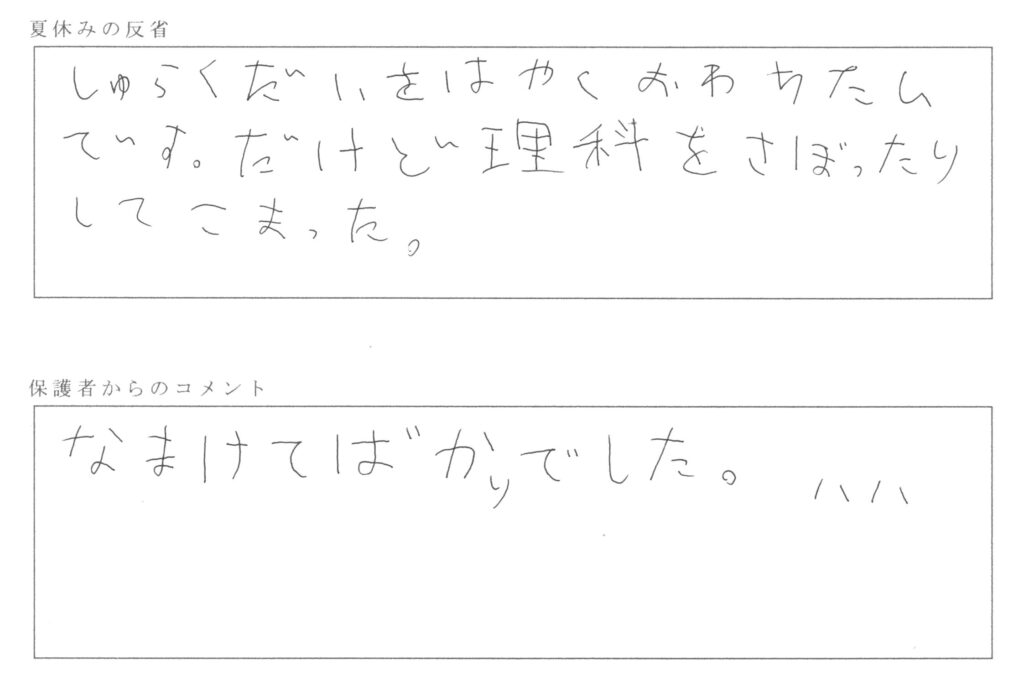 夏休みの反省
しゅらくだいをはやくおわらたい
です。だけど理科をさぼったり
してこまった。
保護者からのコメント
なまけてばかりでした。ハハ